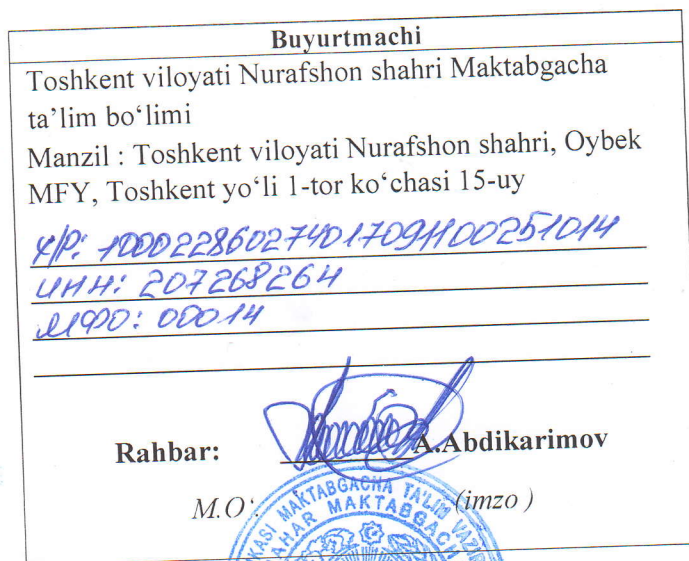 Buyurtmachi
Toshkent viloyati Nurafshon shahri Maktabgacha
ta’lim bo‘limi
Manzil : Toshkent viloyati Nurafshon shahri, Oybek
MFY, Toshkent yo‘li 1-tor ko‘chasi 15-uy
Х/Р: 100022860274017091100251014
ИНН: 207268264
МФО: 00014
Rahbar: A.Abdikarimov
M.O‘. (imzo )
MAKTABGACHA TA'LIM
MAKTABGACH